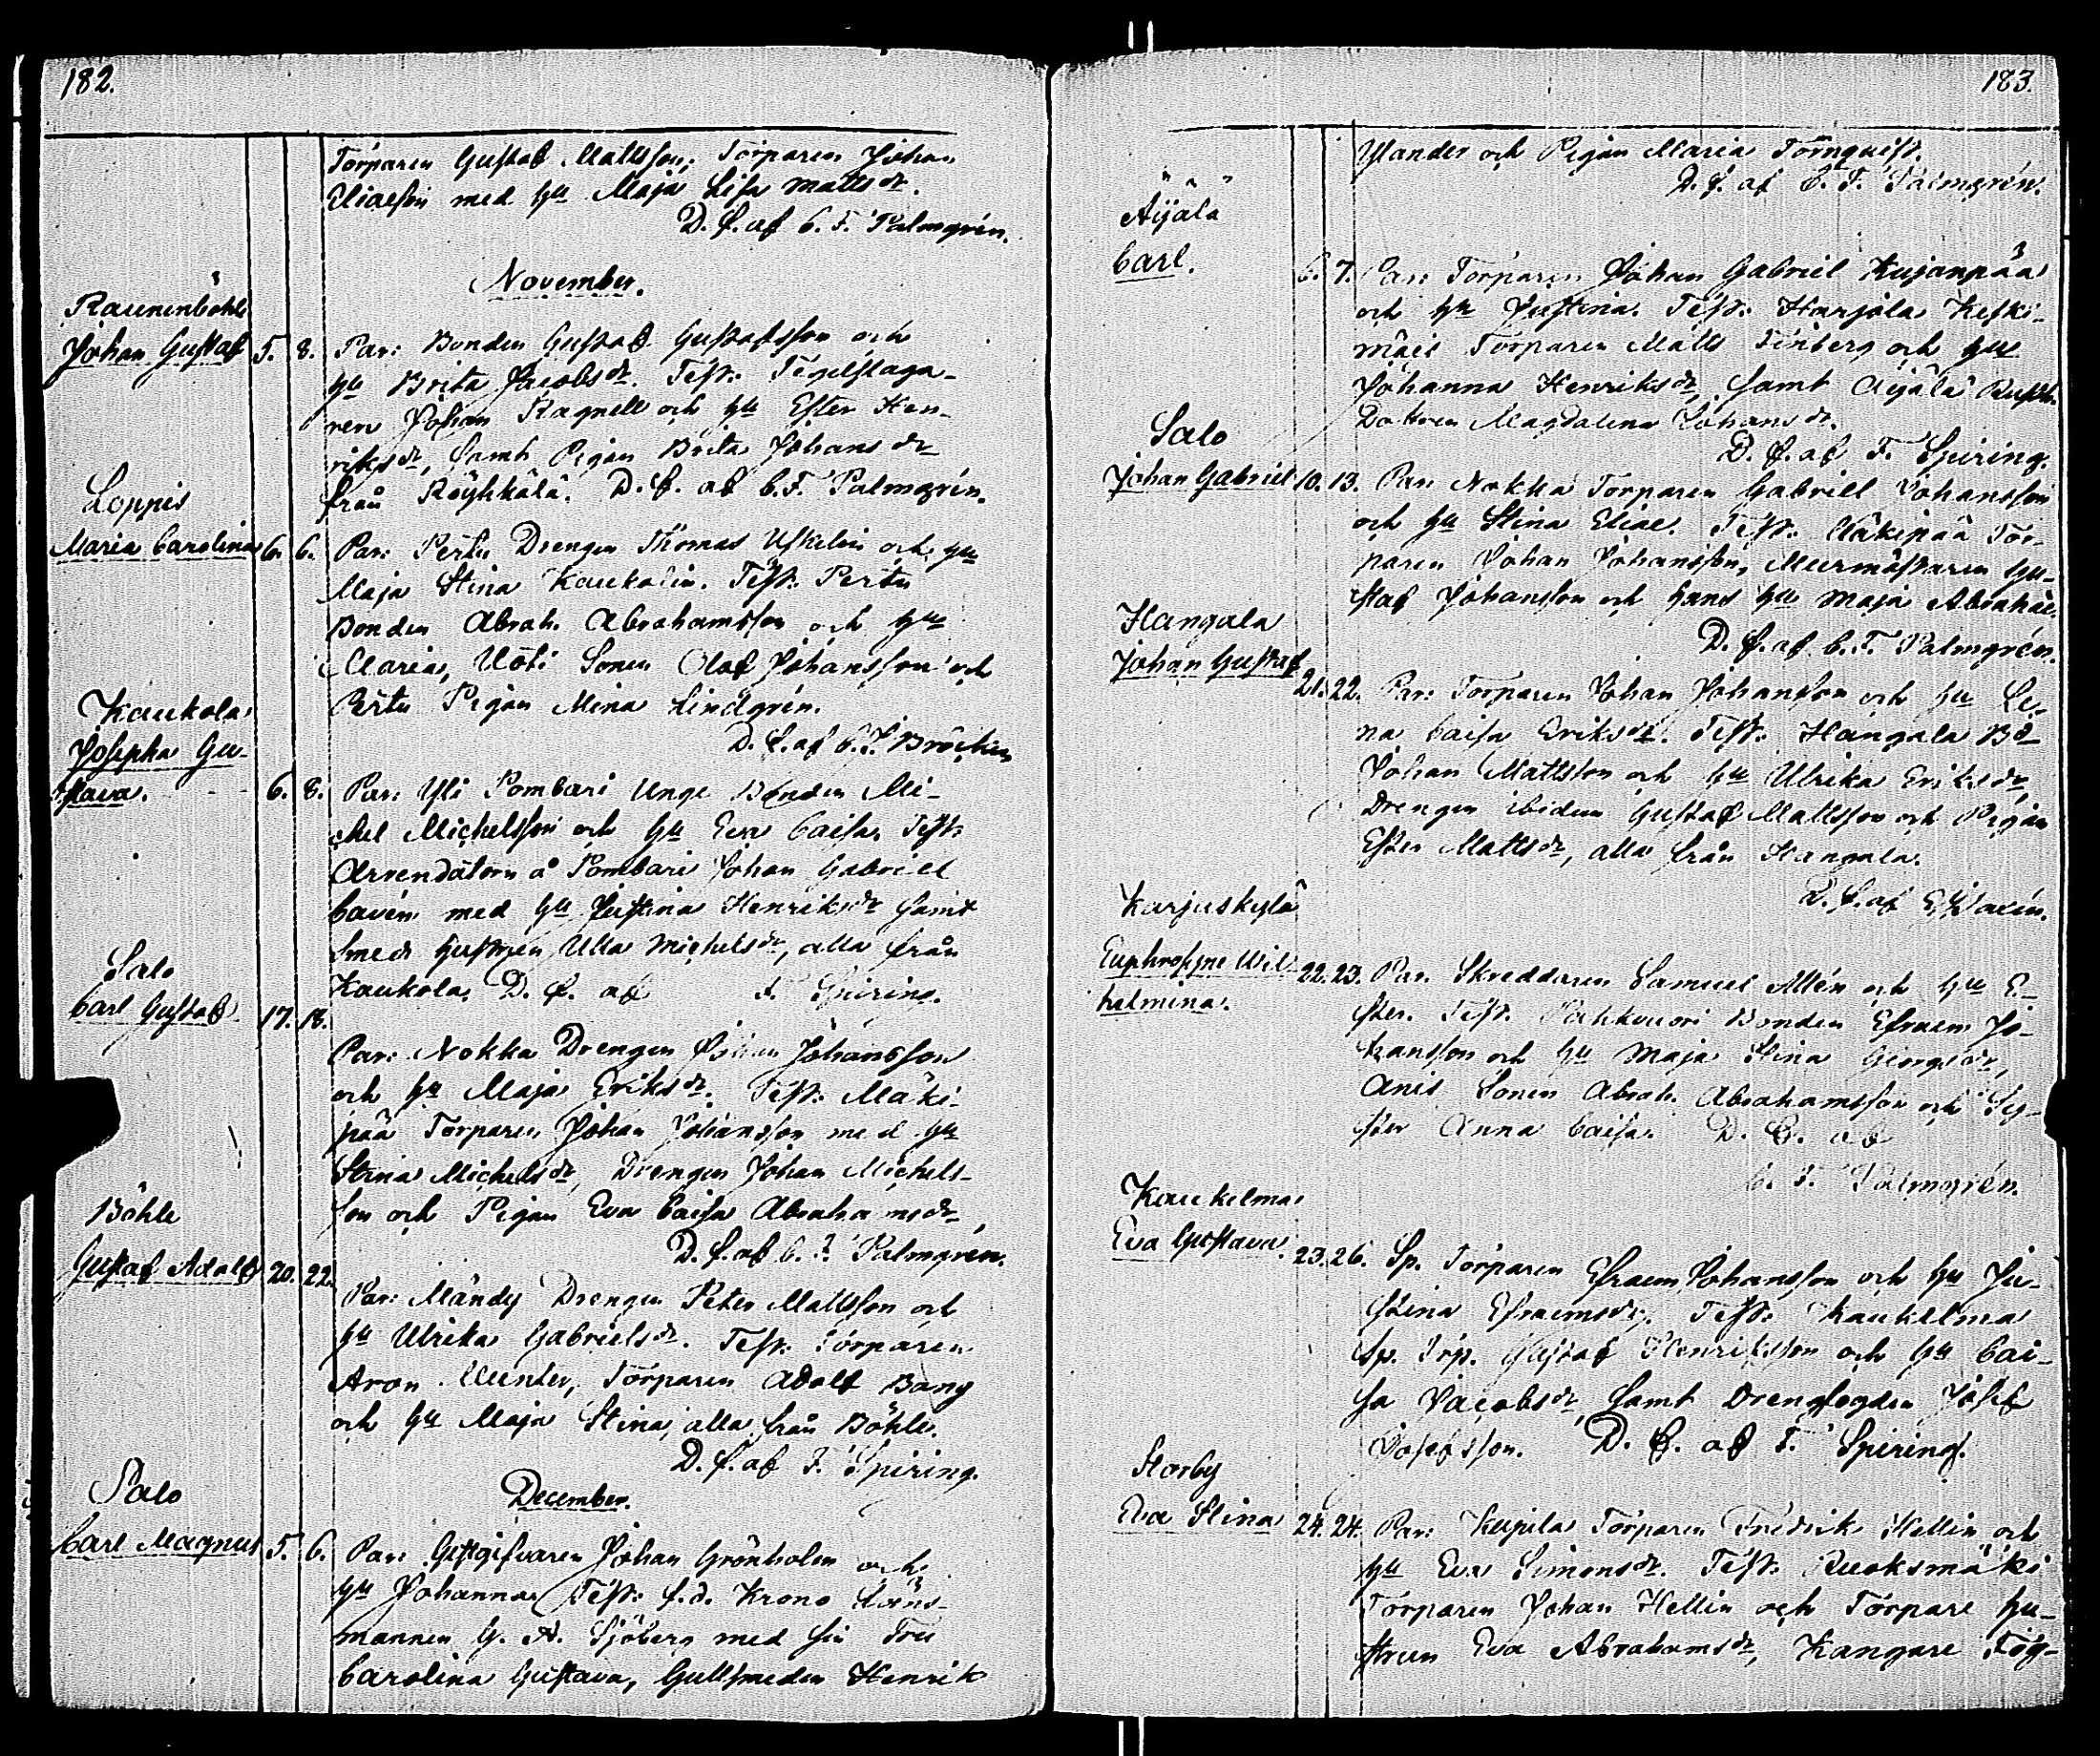 182.
Torparen Gustaf Mattsson, Torparen Johan
Eliaeson med hu Maja Lisa Mattsdr.
D. f. af C. F. Palmgrén.
November.
Raunenböhle
Johan Gustaf 5. 8. Par: Bonden Gustaf Gustafsson och
hu Brita Jacobsdr. Test: Tegelslaga-
ren Johan Ragnell och hu Ester Hen-
riksdr, samt Pigan Brita Johansdr
från Röyhkälä. D. f. af C. F. Palmgrén.
Loppis
Maria Carolina 6. 6. Par: Pertu Drengen Thomas Uskelin och hu
Maja Stina Kaukolin. Test: Pertu
Bonden Abrah. Abrahamsson och hu
Maria, Uoti Sonen Olof Johansson och
Pertu Pigan Mina Lindgrén.
D. f. af C. J.
Kaukola
Josepha Gu-
stava. 6. 8. Par: Yli Pombari Unge Bonden Mi-
chel Michelsson och hu Eva Caisa, Test:
Arrendatorn å Pombari Johan Gabriel
Cavén med hu Justina Henriksdr samt
Smeds hustrun Ulla Michelsdr, alla från
Kaukola. D. f. af F. Spiring.
Salo
Carl Gustaf 17. 18.
Par: Nokka Drengen Johan Johansson
och hu Maja Eriksdr. Test: Mäki-
pää Torparen Johan Johansson med hu
Stina Michelsdr, Drengen Johan Michels-
son och Pigan Eva Caisa Abrahamsdr,
D. f. af C. F. Palmgrén.
Böhle
Gustaf Adolf 20. 22.
Par: Mändy Drengen Peter Mattsson och
hu Ulrika Gabrielsdr. Test: Torparen
Aron Munter, Torparen Adolf Bang
och hu Maja Stina, alla från Böhle.
D. f. af F. Spiring.
December.
Salo
Carl Magnus 5. 6. Par: Gestgifvaren Johan Grönholm och
hu Johanna, Test: f.d. Krono Läns-
mannen G. A. Sjöberg med sin Fru
Carolina Gustava, Gullsmeden Henrik
183.
Ylander och Pigan Maria Törnquist.
D. f. af C. F. Palmgrén.
Äijälä
Carl. 6. 7. Par: Torparen Johan Gabriel Kujanpää
och hu Justina. Test: Harjola Keski-
mäei Torparen Matts Finberg och hu
Johanna Henriksdr, samt Äijälä Rusth.
Dottren Magdalena Johansdr.
D. f. af F. Spiring.
Salo
Johan Gabriel 10. 13. Par: Nokka Torparen Gabriel Johansson
och hu Stina Eliae. Test: Mäkipää Tor-
paren Johan Johansson, Murmästaren Gu-
staf Johansson och hans hu Maja Abrahae.
D. f. af C. F. Palmgrén.
Hangala
Johan Gustaf
21. 22. Par: Torparen Johan Johansson och hu Le-
na Caisa Eriksdr. Test: Hangala Bd
Johan Mattsson och hu Ulrika Eriksdr,
Drengen ibidem Gustaf Mattsson och Pigan
Ester Mattsdr, alla från Hangala.
D. f. af
Karjuskylä
Euphrosyne Wil-
helmina. 22. 23. Par. Skreddaren Samuel Allén och hu E-
ster. Test. Pahkvuori Bonden Efraem Jo-
hansson och hu Maja Stina Georgsdr,
Anis Sonen Abrah. Abrahamsson och Sy-
ster Anna Caisa. D. f. af
C. F. Palmgrén.
Kaukelma
Eva Gustava. 23. 26. Sp. Torparen Efraem Johansson och hu Ju-
stina Efraemsdr. Test: Kaukelma
Sp. Torp. Gustaf Henriksson och hu Cai-
sa Jacobsdr, samt Drengfogden Josef
Josefsson. D. f. af F. Spiring.
Storby
Eva Stina 24. 24. Par: Kupila Torparen Fredrik Hellin och
hu Eva Simonsdr. Test: Ruoksmäki
Torparen Johan Hellin och Torpare hu-
strun Eva Abrahamsdr, Kangare Tog-